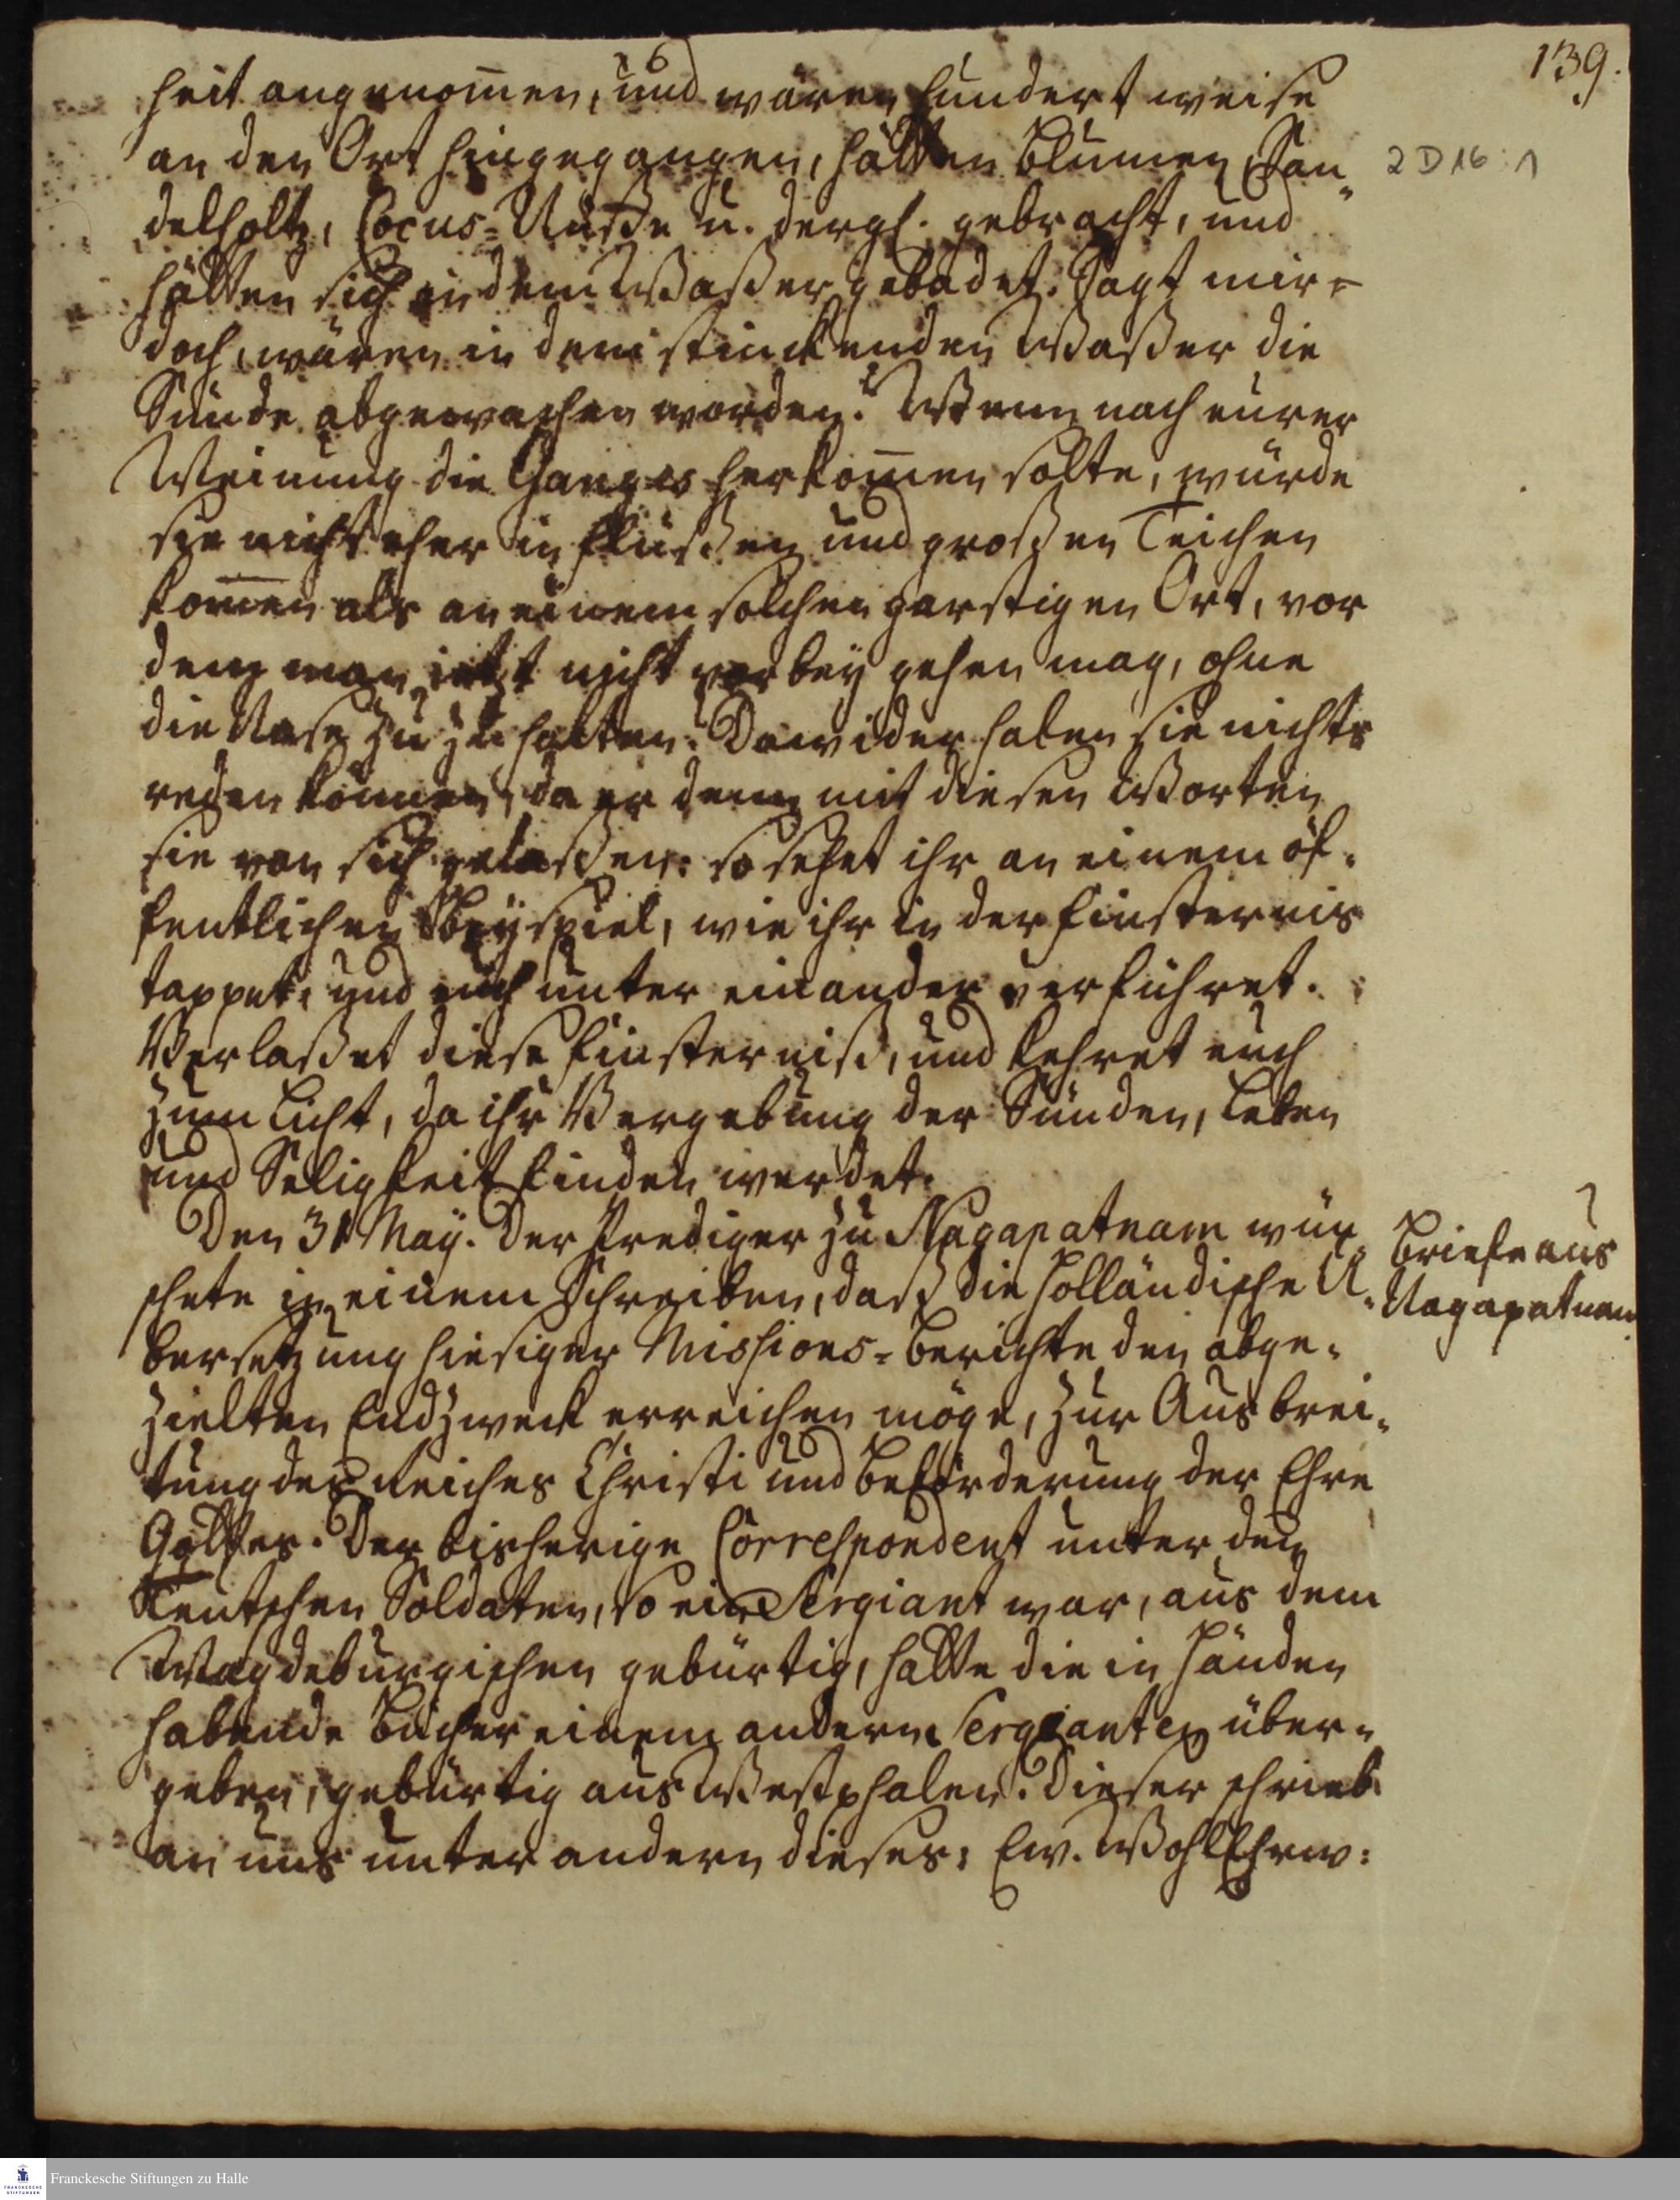 139.
heit angenom̅en, und wären hundert weise
an den Ort hingegangen, hätten Blumen, San=
2 D 16 : 1
delholtz, Cocus=Nüße u. dergl. gebracht, und
hätten sich in dem Waßer gebadet. Sagt mir
doch, wären in dem stinckenden Waßer die
Sünde abgewaschen worden? Wenn nach eurer
Meinung die Ganges herkom̅en solte, würde
sie nicht eher in Flüßen und großen Teichen
kom̅en als an einem solchen garstigen Ort, vor
dem man jetzt nicht vorbey gehen mag, ohne
die Nase zu zu halten. Dawider haben sie nichts
reden können, da er denn mit diesen Worten
sie von sich gelaßen: so sehet ihr an einem öf=
fentlichen Beyspiel, wie ihr in der Finsternis
tappet, und euch unter einander verführet.
Verlaßet diese Finsterniß, und kehret euch
zum Licht, da ihr Vergebung der Sünden, Leben
und Seligkeit finden werdet.
Den 31 May. Der Prediger zu Nagapatnam wün=
Briefe aus
Nagapatnam.
schete in einem Schreiben, daß die Holländische U=
bersetzung hiesiger Missions=Berichte den abge=
zielten Endzweck erreichen möge, zur Ausbrei=
tung des Reiches Christi und Beförderung der Ehre
Gottes. Der bisherige Correspondent unter den
Teutschen Soldaten, so ein Sergiant war, aus dem
Magdeburgischen gebürtig, hatte die in Händen
habende Bücher einem andern Sergianten über=
geben, gebürtig aus Westphalen. Dieser schrieb
an uns unter andern dieses: Ew. WohlEhrw:
Franckesche Stiftungen zu Halle